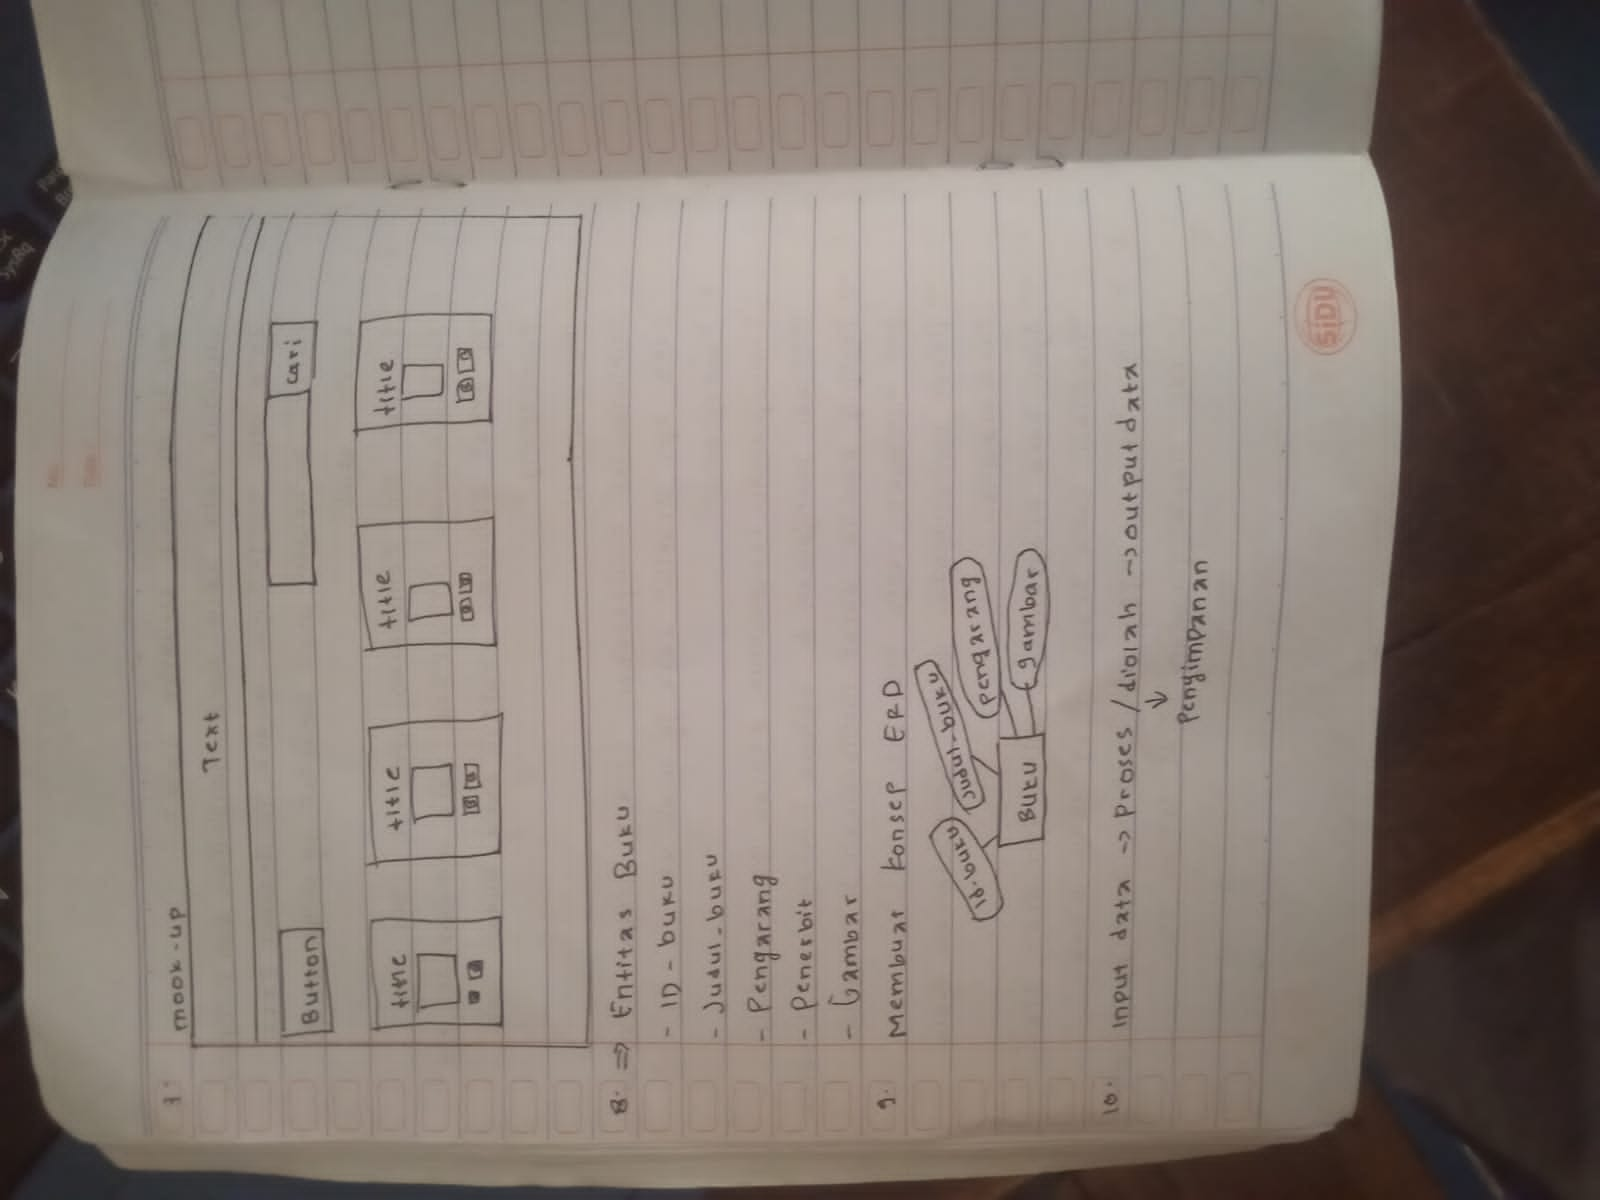 7. mook-up
Text
Button
Cari
title
title
title
title
8. => Entitas Buku
- ID-buku
- Judul-buku
- Pengarang
- Penerbit
- Gambar
9. Membuat konsep ERD
id-buku
Judul-buku
pengarang
gambar
Buku
10. Input data -> Proses / diolah -> output data
↓
Penyimpanan
SiDU